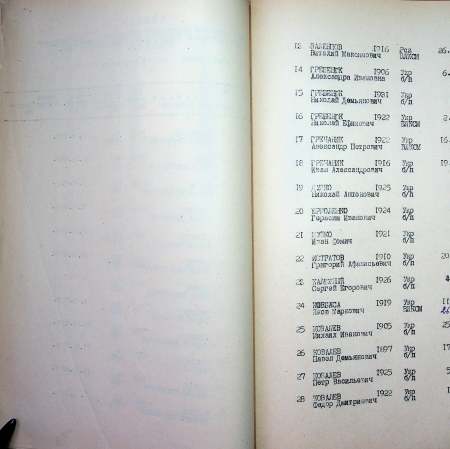 13 ВАЛЕНТОВ 1916 Рос 26.
Виталий Максимович ВЛКСМ
14 ГРЕБЕНЮК 1906 Укр 6.
Александра Ивановна б/п
15 ГРЕБЕНЮК 1931 Укр
Николай Демьянович б/п
16 ГРЕБЕНЮК 1922 Укр 2.
Николай Ефимович ВЛКСМ
17 ГРЕЧАНИК 1922 Укр 16.
Александр Петрович ВЛКСМ
18 ГРЕЧАНИК 1916 Укр 19.
Иван Александрович б/п
19 1925 Укр
Николай Антонович б/п
20 ЕРМОЛЕНКО 1924 Укр
Герасим Иванович б/п
21 1921 Укр
Иван Фомич б/п
22 ИСТРАТОВ 1910 Укр 20
Григорий Афанасьевич б/п
23 КАЛЮЖНЫЙ 1926 Укр
Сергей Егорович б/п
24 1919 Укр 11
Яков Маркович ВЛКСМ 26
25 КОВАЛЕВ 1905 Укр 25
Михаил Иванович б/п
26 КОВАЛЕВ 1897 Укр 17
Павел Демьянович б/п
27 КОВАЛЕВ 1925 Укр 5
Петр Васильевич б/п
28 КОВАЛЕВ 1922 Укр 1
Федор Дмитриевич б/п